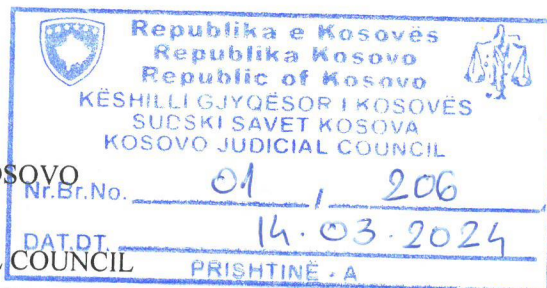 Republika e Kosovës
Republika Kosovo
Republic of Kosovo
KËSHILLI GJYQËSOR I KOSOVËS
SUDSKI SAVET KOSOVA
KOSOVO JUDICIAL COUNCIL
OSOVO
Nr.Br.No. 01 / 206
DAT.DT. 14.03.2024
COUNCIL
PRISHTINË - A